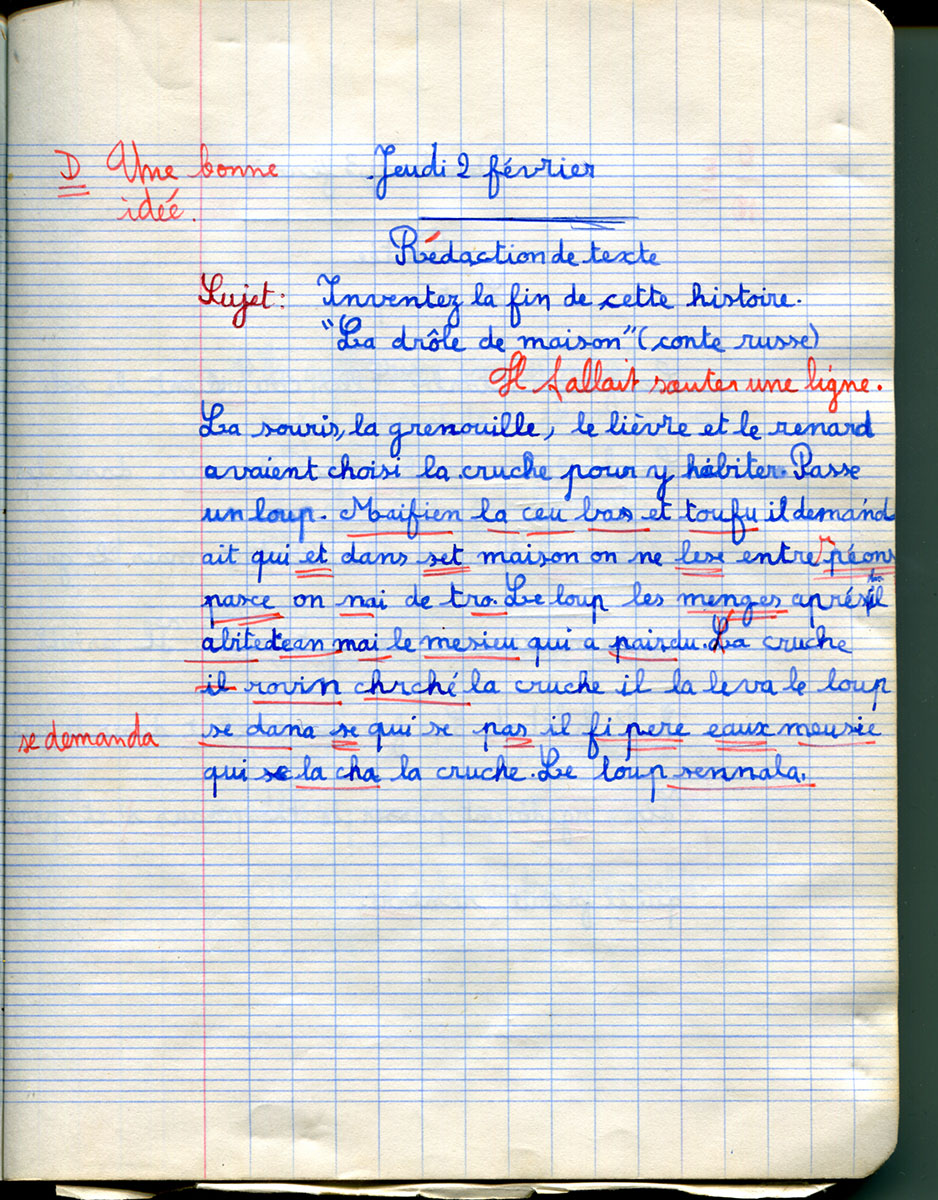 D Une bonne
idée.
Jeudi 2 février
Rédaction de texte
Sujet: Inventez la fin de cette histoire.
"La drôle de maison" (conte russe)
Il fallait sauter une ligne.
La souris, la grenouille, le lièvre et le renard
avaient choisi la cruche pour y habiter. Passe
un loup. Maifien la ceu bas et toufu il demand
ait qui et dans set maison on ne lese entre péons
pasce on nai de tro. Le loup les menges aprés il
abitedean mai le mesieu qui a paisdu. La cruche
il rovin chrché la cruche il la leva le loup
se demanda
se dana se qui se pas il fi pere eaux meusie
qui se la cha la cruche. Le loup sennala.